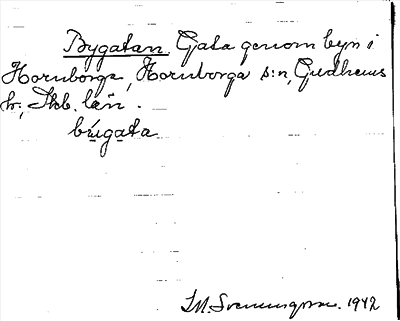 Bygatan. Gata genom byn i
Hornborga, Hornborga s:n, Gudhems
h:, Skb. län.
býgata
I.M. Svenungsson. 1942